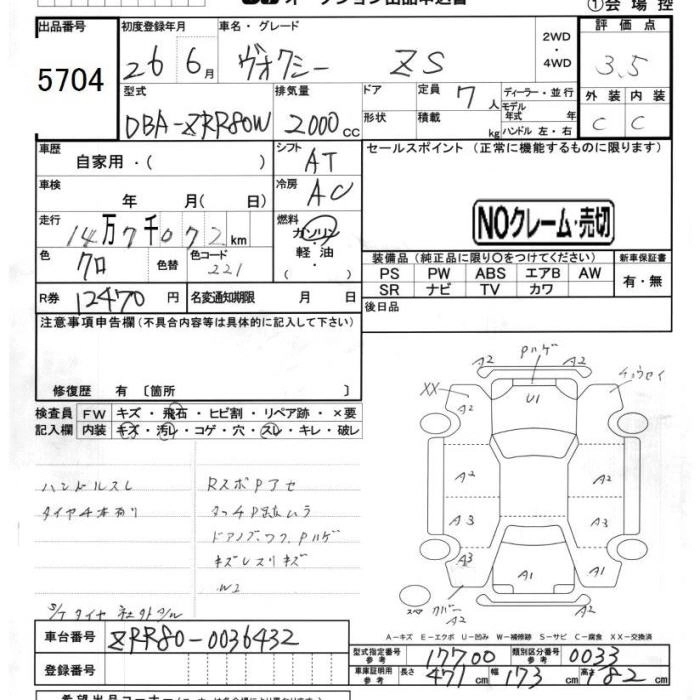 オークション出品申込書
①会場控
出品番号 初度登録年月 車名・グレード 2WD・4WD 評価点
5704 26 6月 ヴォクシー ZS 3.5
型式 排気量 ドア 定員 7人 ディーラー・並行 外装 内装
DBA-ZRR80W 2000cc 形状 積載 kg モデル年式 年 ハンドル 左・右 C C
車歴 自家用・( ) シフト AT セールスポイント (正常に機能するものに限ります)
車検 年 月( 日) 冷房 AC
走行 14万7千072km 燃料 ガソリン・軽油・( ) NOクレーム・売切
色 クロ 色替 色コード 221
装備品(純正品に限り〇をつけてください) 新車保証書
PS PW ABS エアB AW 有・無
SR ナビ TV カワ
R券 12470円 名変通知期限 月 日 後日品
注意事項申告欄(不具合内容等は具体的に記入して下さい)
修復歴 有〔箇所 〕
検査員記入欄 FW キズ・飛石・ヒビ割・リペア跡・×要
内装 キズ・汚レ・コゲ・穴・スレ・キレ・破レ
Pハゲ
A2 A2
XX チョウセイ
A2 U1 A2
A2 A2
A3 A3
A3 A1 A1
スペア A2 A2
ハンドルスレ RスポPアセ
タイヤ4本有り タッチP跡ムラ
ドアノブ、ワク、Pハゲ
キズレスリキズ
W2
A-キズ E-エクボ U-凹み W-補修跡 S-サビ C-腐食 XX-交換済
車台番号 ZRR80-0036432
型式指定番号 参考 17700 類別区分番号 参考 0033
登録番号 車庫証明用 参考 長さ 471cm 幅 173cm 高さ 182cm
希望出品コーナー